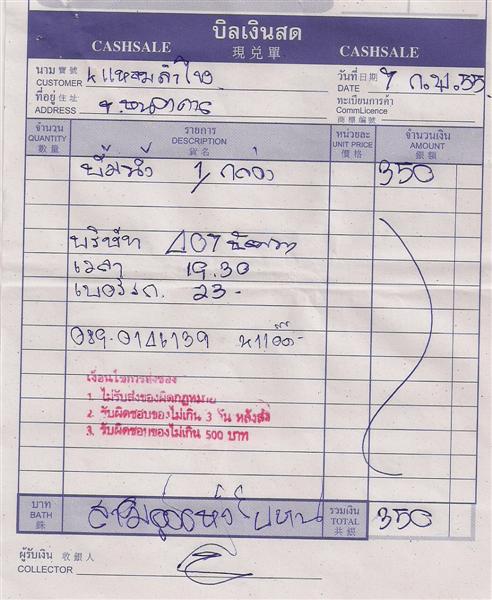 บิลเงินสด
CASHSALE 現兑單 CASHSALE
นาม 寶號
CUSTOMER
วันที่ 日期
DATE 7 ก.พ. 55
ที่อยู่ 住址
ADDRESS
ทะเบียนการค้า
CommLicence
商標編號
จำนวน รายการ หน่วยละ จำนวนเงิน
QUANTITY DESCRIPTION UNIT PRICE AMOUNT
數量 貨名 價格 銀額
1 กล่อง 350
บริษัท 407
เวลา 19.30
เบอร์รถ. 23-
089-0146139
เงื่อนไขการส่งของ
1. ไม่รับส่งของผิดกฎหมาย
2. รับผิดชอบของไม่เกิน 3 วัน หลังส่ง
3. รับผิดชอบของไม่เกิน 500 บาท
บาท
BATH
銖
สามร้อยห้าสิบบาท
รวมเงิน
TOTAL 350
共銀
ผู้รับเงิน 收銀人
COLLECTOR